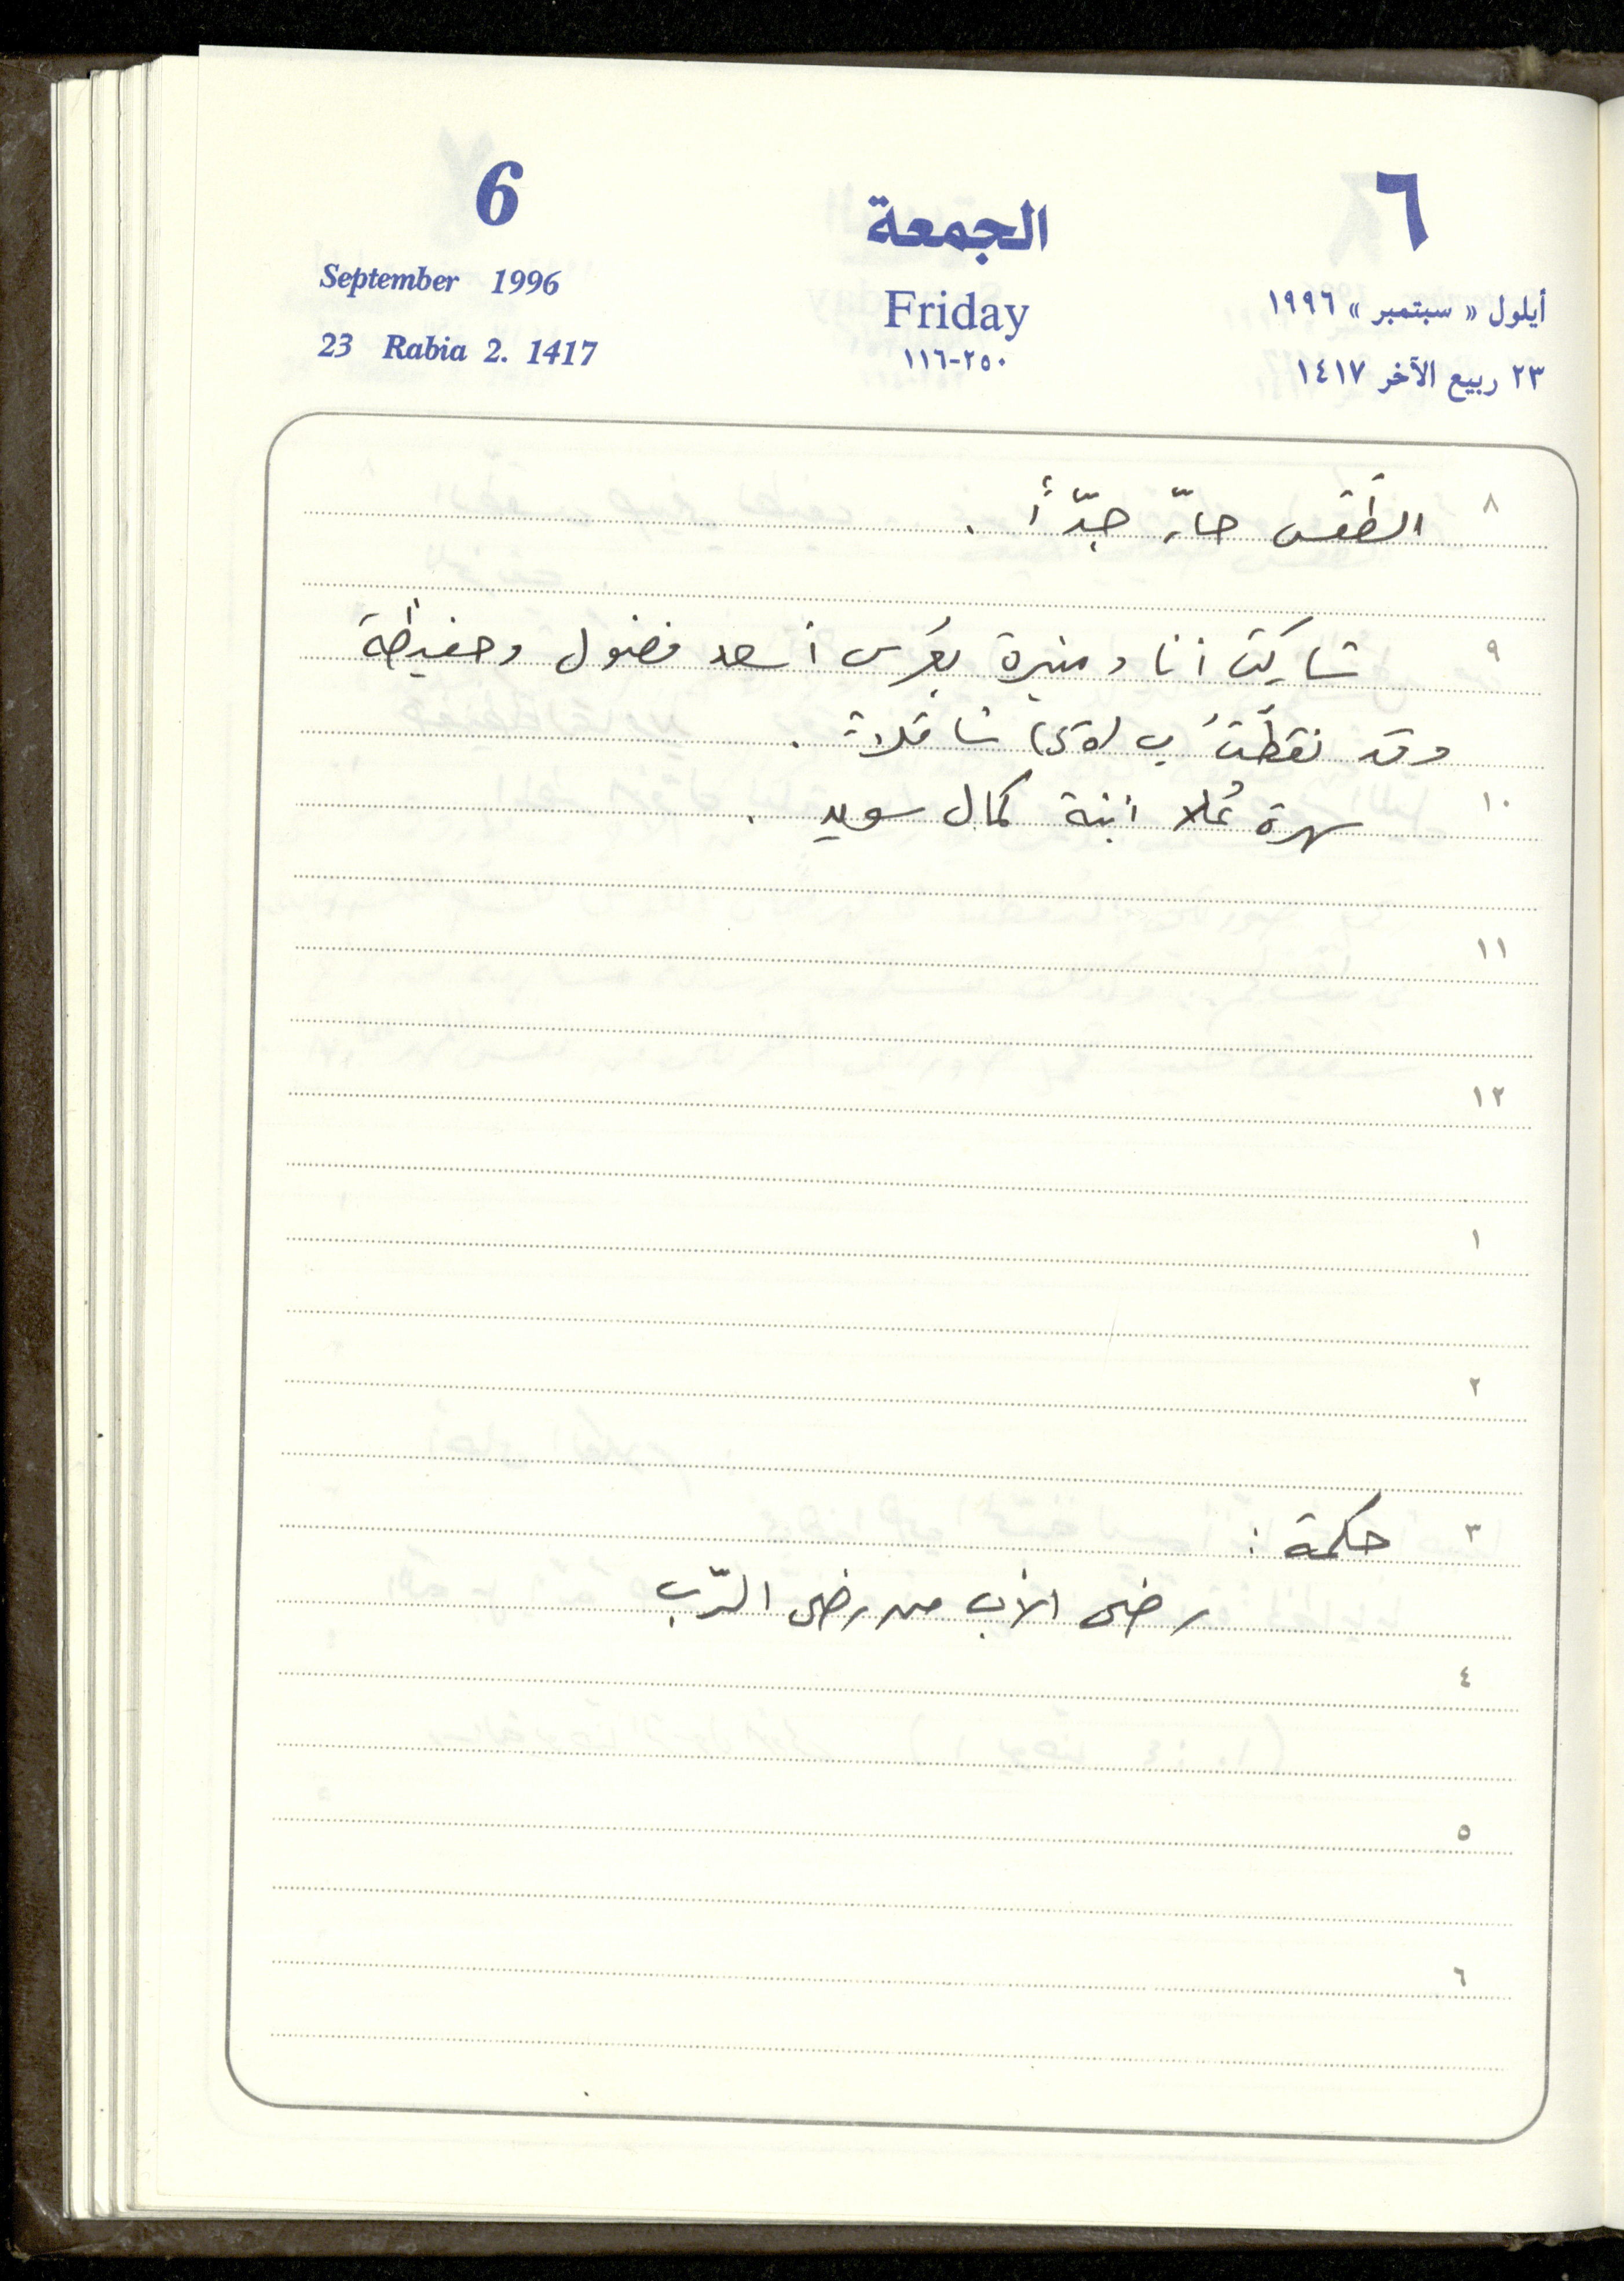 6
September 1996
23 Rabia 2. 1417
الجمعة
Friday
٢٥٠-١١٦
٦
أيلول « سبتمبر » ١٩٩٦
٢٣ ربيع الآخر ١٤١٧
٨ الطّقس حارّ جدّاً .
٩ شاركتُ أنا ومنيرة بعُرس أسعد فضول وحفيظة
وقد نقطّتُ ب شاقلاً .
١٠ سهرة عُلا ابنة كمال سويد .
١١
١٢
١
٢
٣ حكمة :
رضى الأب من رضى الرّب
٤
٥
٦